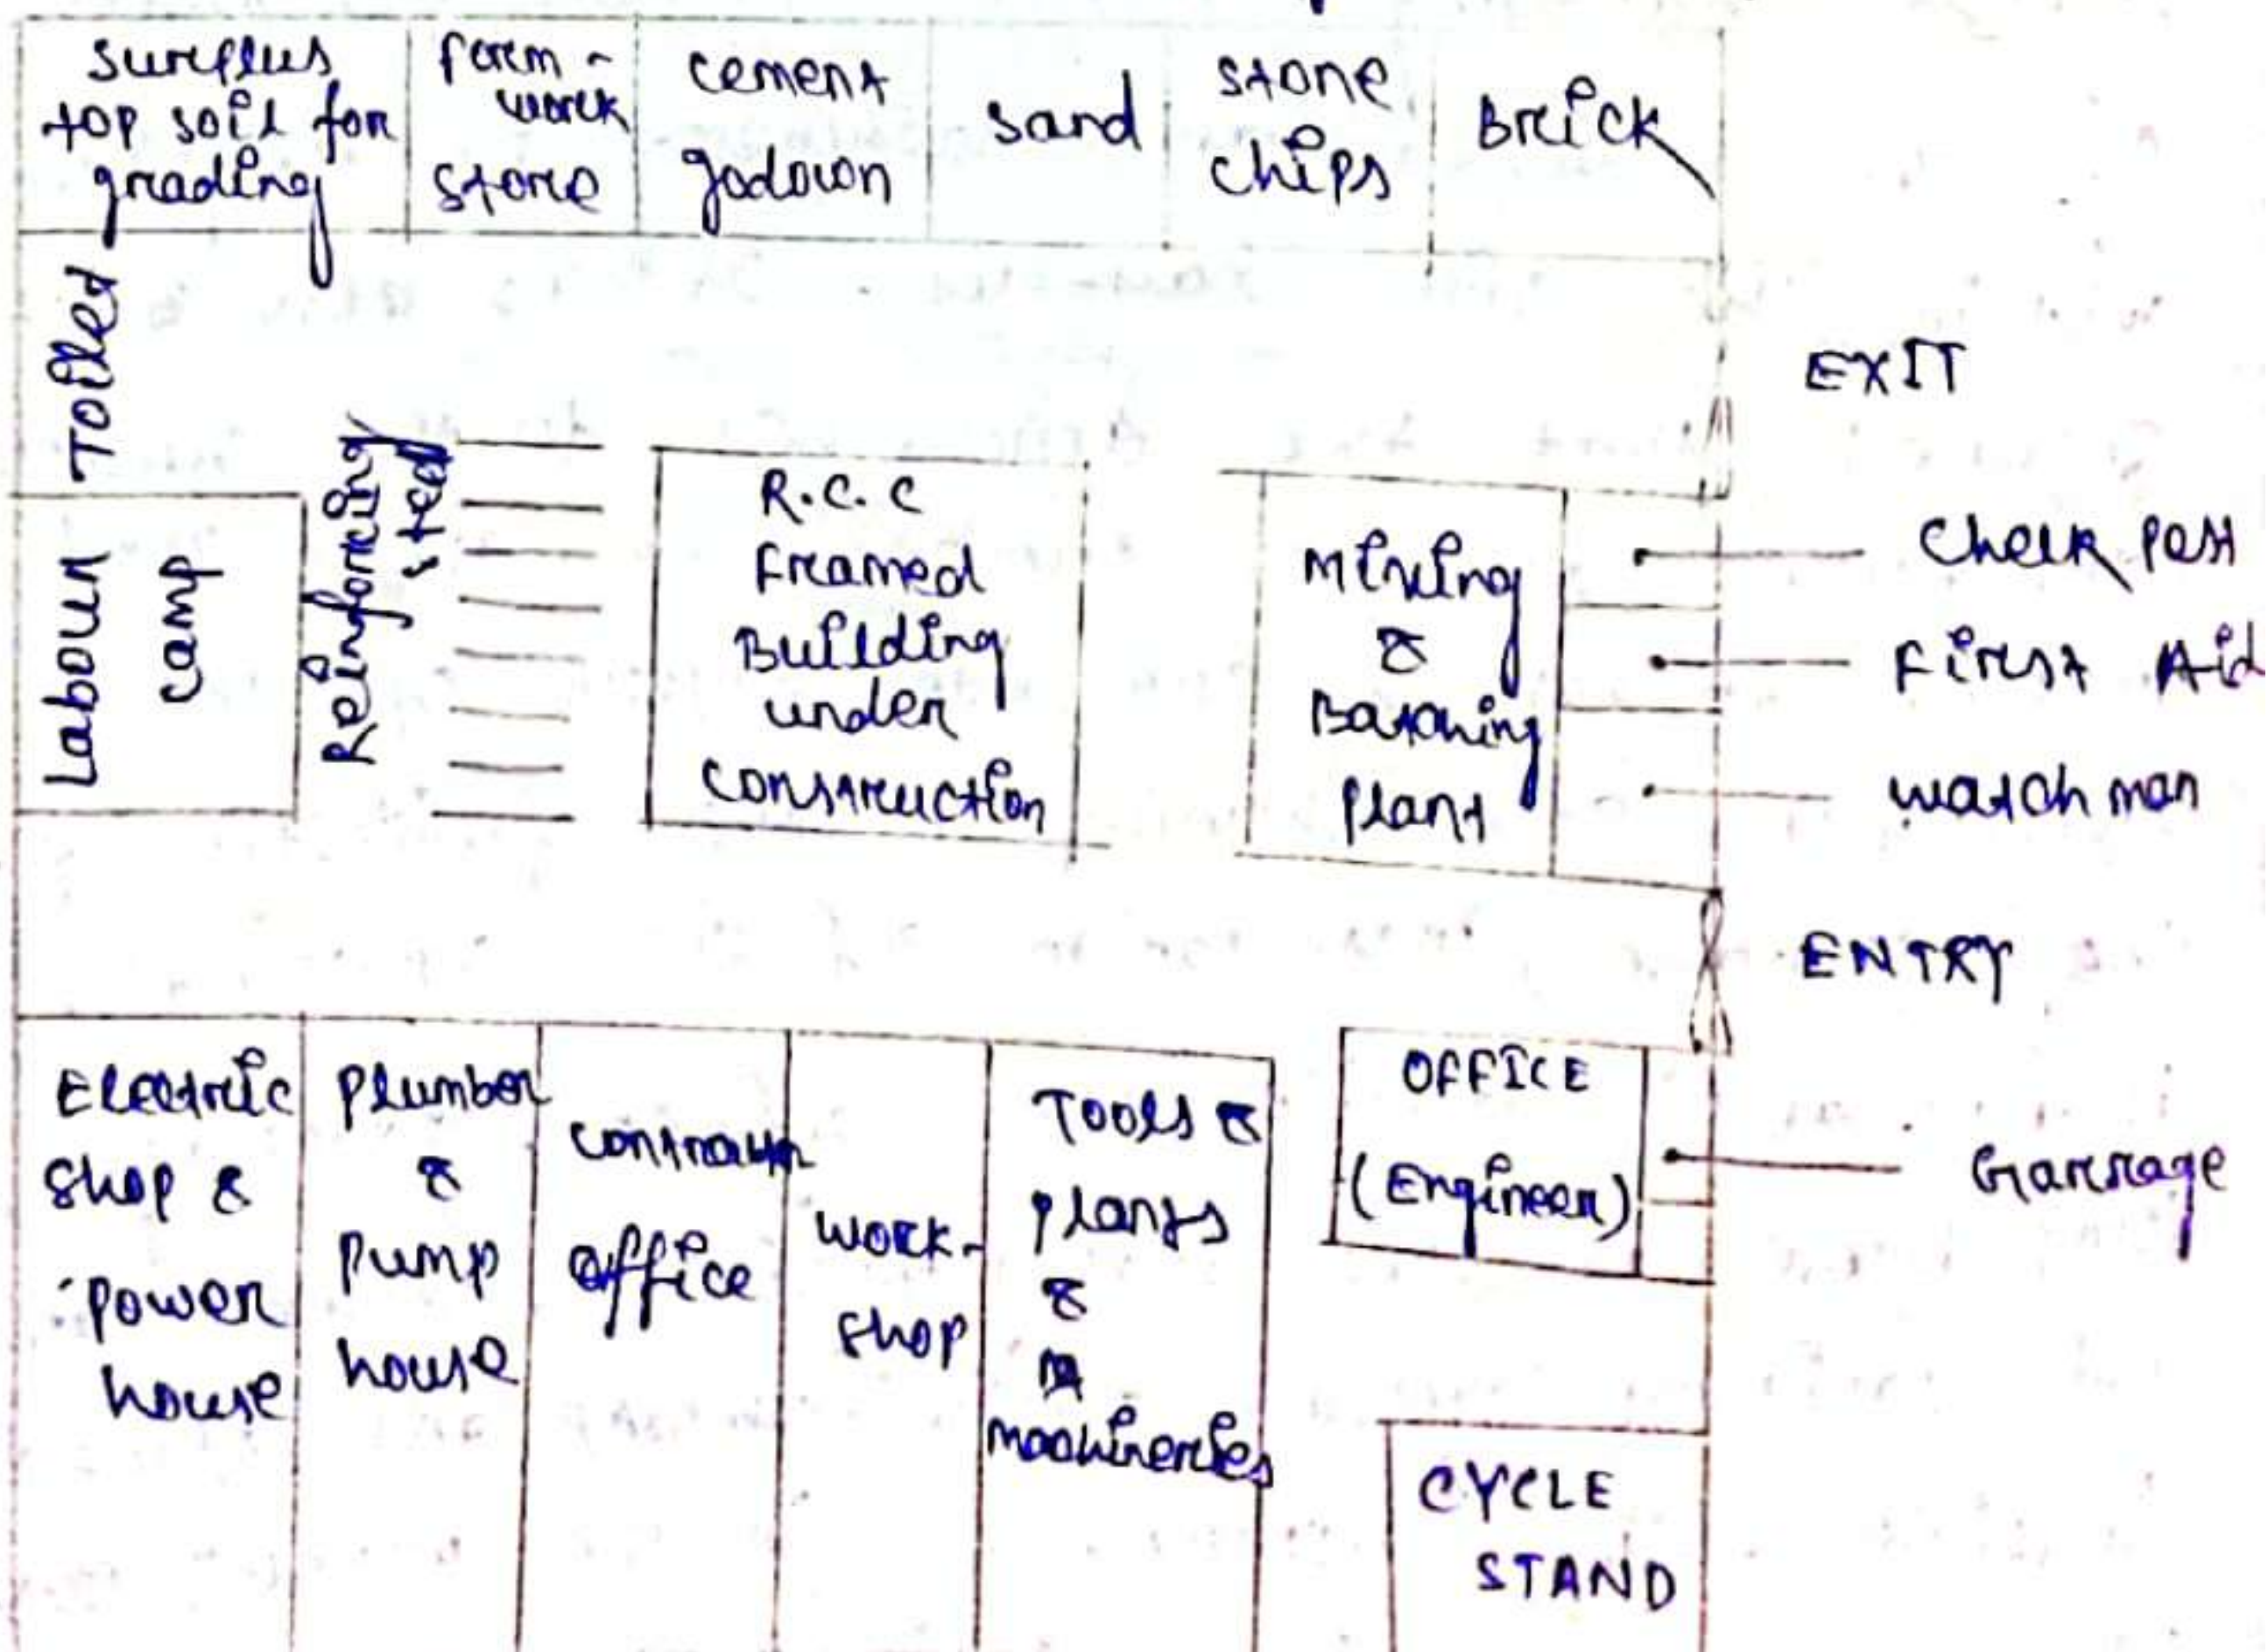 Surplus
top soil for
grading
form-
work
store
cement
godown
sand
stone
chips
Brick
Toilet
EXIT
Labour
camp
Reinforcing
steel
R.C.C
Framed
Building
under
construction
Mixing
&
Batching
plant
Check post
First Aid
watch man
ENTRY
Electric
shop &
power
house
Plumber
&
Pump
house
contractor
office
work-
shop
Tools &
plants
&
machineries
OFFICE
(Engineer)
Garrage
CYCLE
STAND